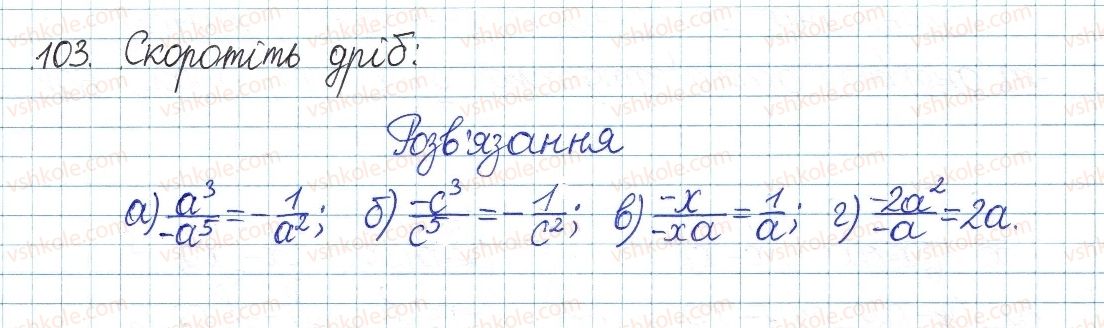 103. Скоротіть дріб:
Розв'язання
а) a³/-a⁵ = -1/a²; б) -c³/c⁵ = -1/c²; в) -x/-xa = 1/a; г) -2a²/-a = 2a.